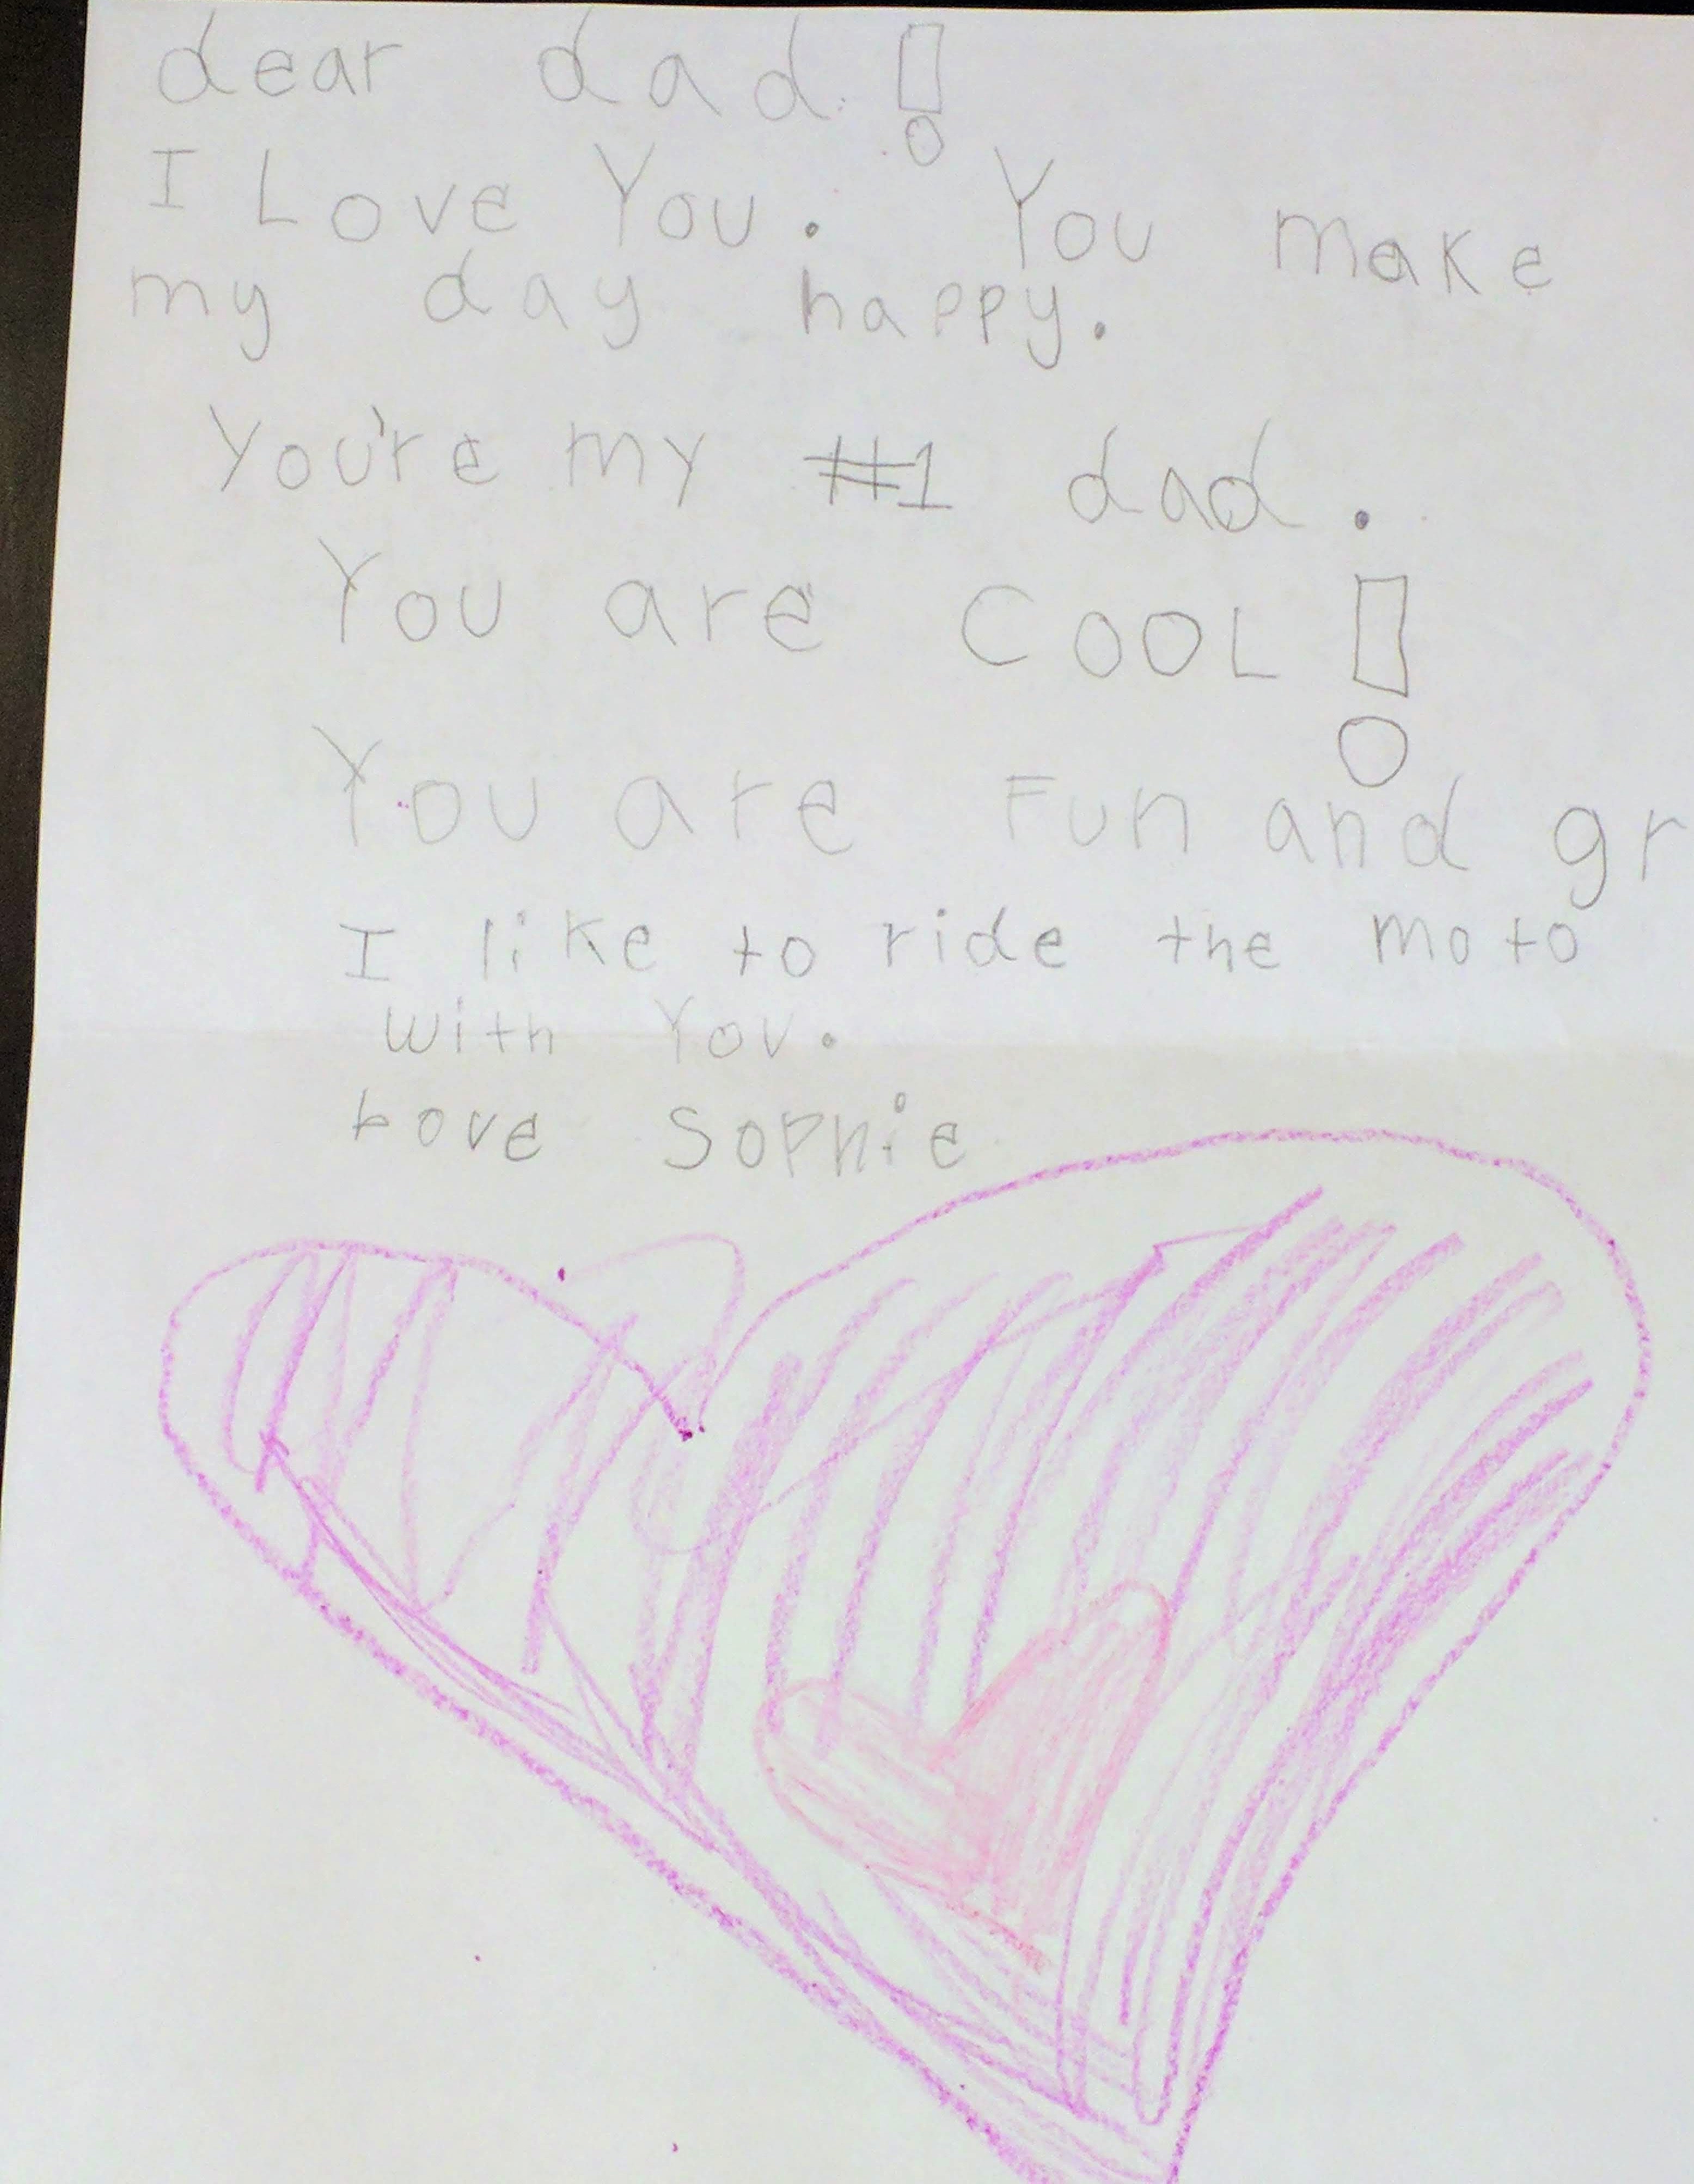 dear dad!
I Love You. You make
my day happy.
You're my #1 dad.
You are COOL!
You are Fun and gr
I like to ride the moto
with You.
Love Sophie